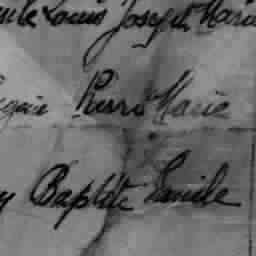 Louis Joseph Marie
Pierre Marie
Baptiste Emile